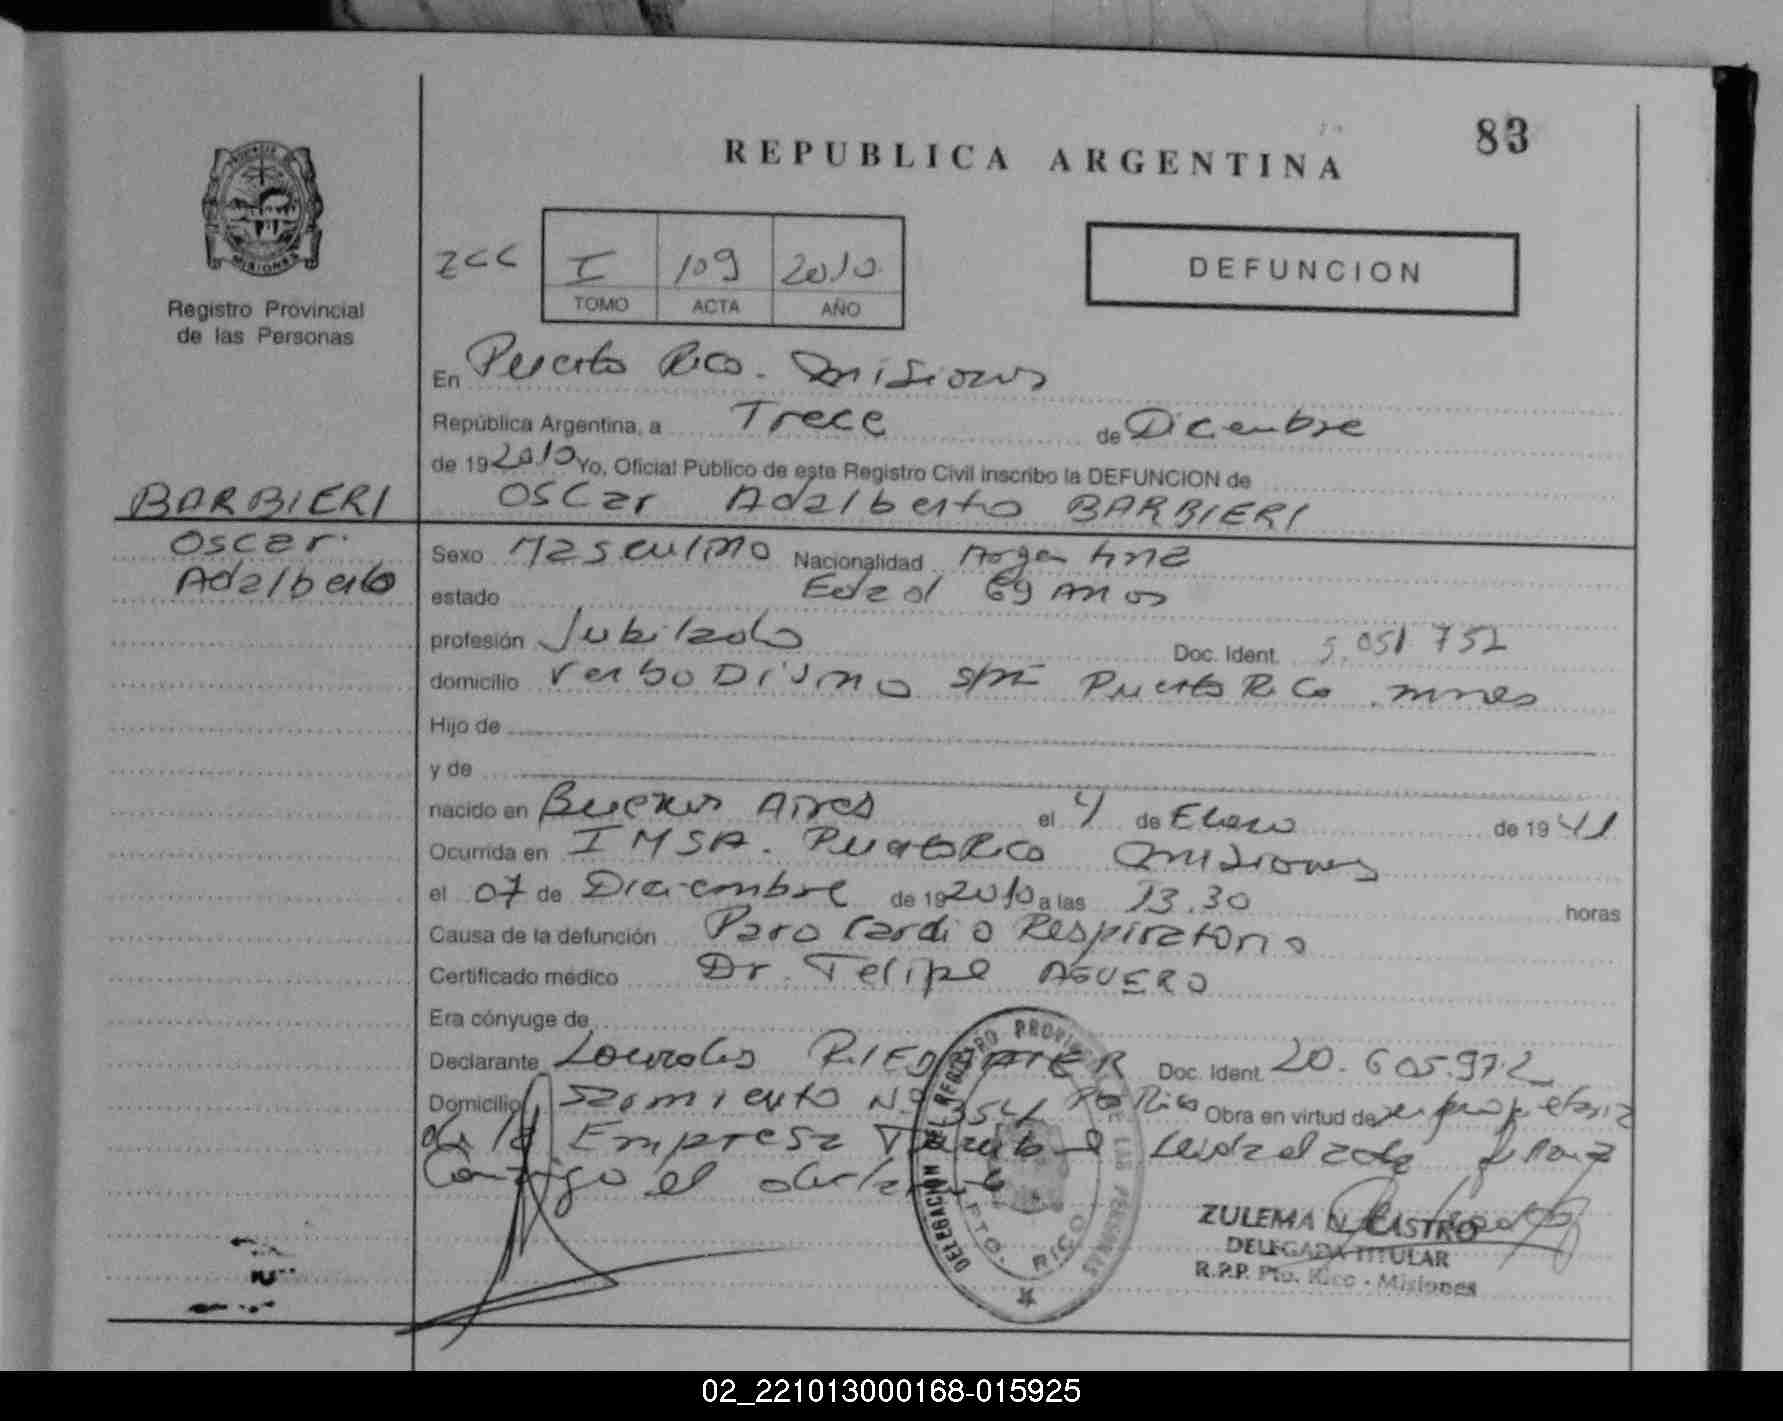 83
REPUBLICA ARGENTINA
PROVINCIA DE
MISIONES
Registro Provincial
de las Personas
zcc
I 109 2010
TOMO ACTA AÑO
DEFUNCION
En Puerto Rico. Misiones
República Argentina, a Trece de Diciembre
de 19 2010 Yo, Oficial Público de este Registro Civil inscribo la DEFUNCION de
Oscar Adalberto BARBIERI
BARBIERI
Oscar
Adalberto
Sexo Masculino Nacionalidad Argentina
estado Edad 69 años
profesión Jubilado Doc. Ident. 5.051 752
domicilio Verbo Divino s/nº Puerto Rico. mnes
Hijo de
y de
nacido en Buenos Aires el 4 de Enero de 19 41
Ocurrida en IMSA. Puerto Rico Misiones
el 07 de Diciembre de 19 2010 a las 13.30 horas
Causa de la defunción Paro Cardio Respiratorio
Certificado médico Dr. Felipe AGUERO
Era cónyuge de
Declarante Lourdes Doc. Ident. 20.605.972
Domicilio Sarmiento Nº 354 Pto Rico Obra en virtud de ser propietaria
de la Empresa Leida el acta firma
Conmigo el declarante
DELEGACION DEL REGISTRO PROVINCIAL DE LAS PERSONAS
PTO. RICO
ZULEMA N. CASTRO
DELEGADA TITULAR
R.P.P. Pto. Rico - Misiones
02_221013000168-015925